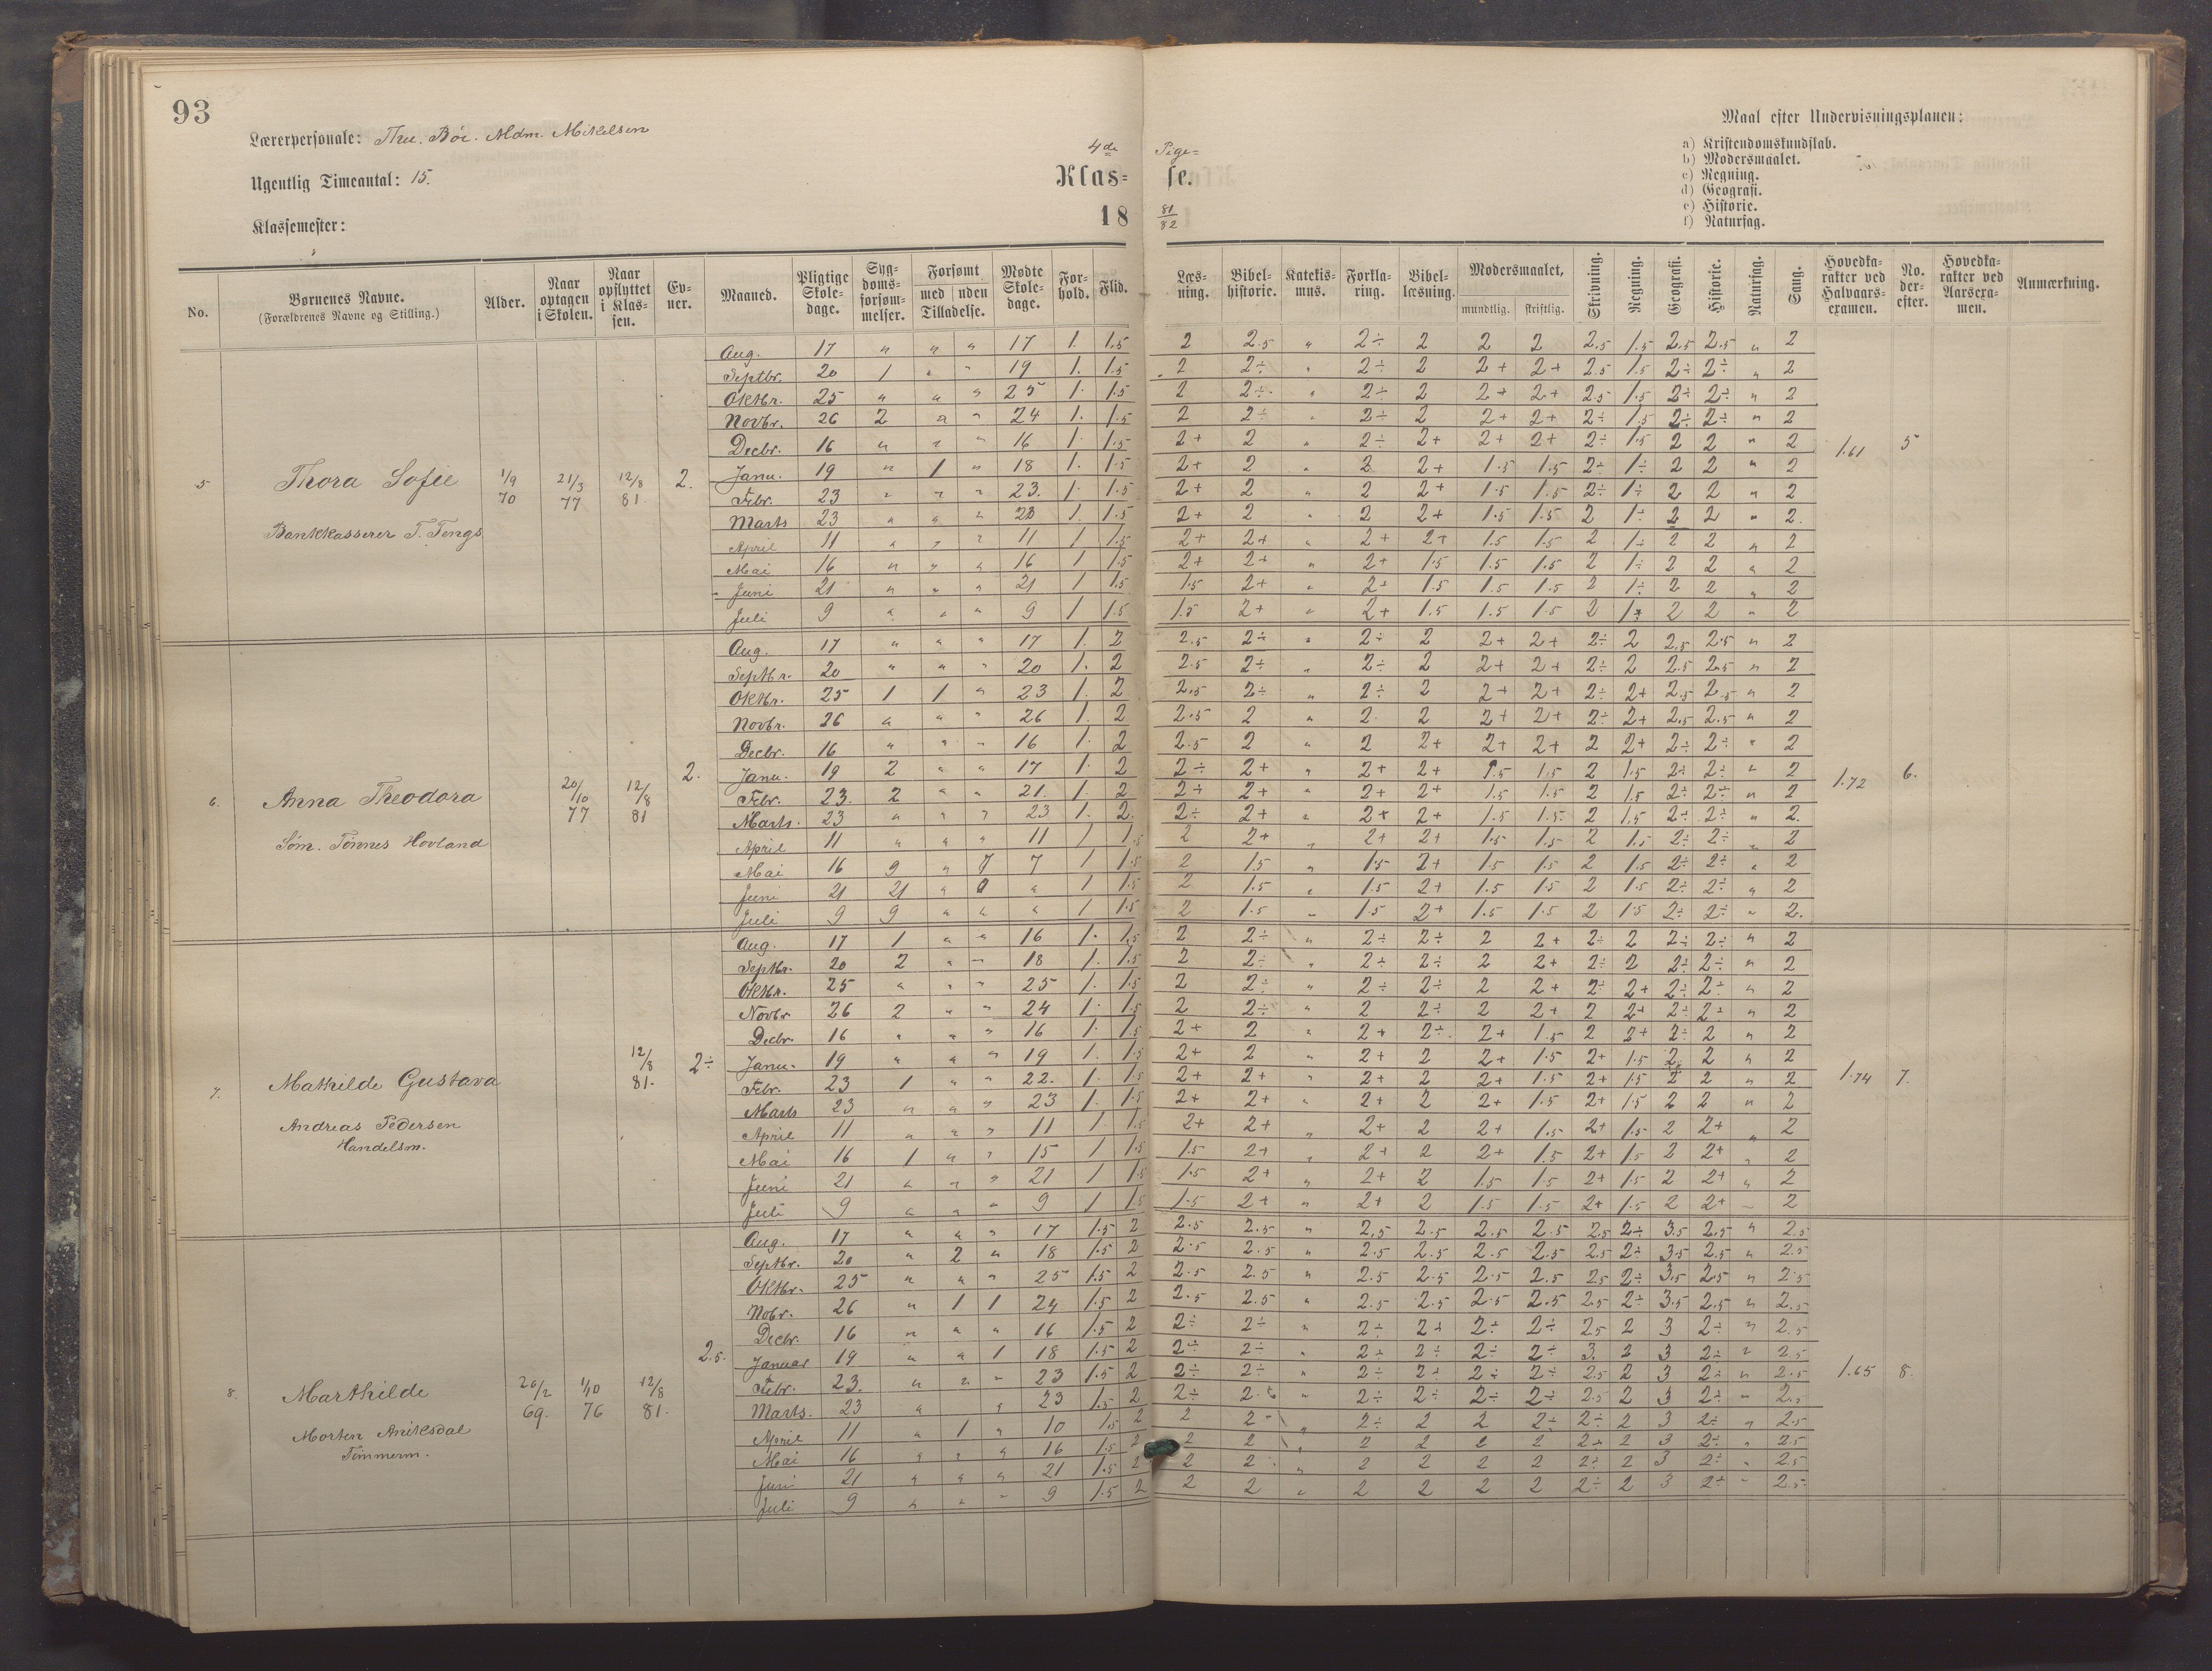 93
Lærerpersonale: Thu. Böe. Mdm. Mikelsen
Ugentlig Timeantal: 15.
Klassemester:
4de Pige=
Klas= se.
18 81/82
Maal efter Undervisningsplanen:
a) Kristendomskundskab.
b) Modersmaalet.
c) Regning.
d) Geografi.
e) Historie.
f) Naturfag.
No. | Børnenes Navne. (Forældrenes Navne og Stilling.) | Alder. | Naar optagen i Skolen. | Naar opflyttet i Klassen. | Evner. | Maaned. | Pligtige Skoledage. | Sygdomsforsømmelser. | Forsømt med / uden Tilladelse. | Mødte Skoledage. | Forhold. | Flid. | Læsning. | Bibelhistorie. | Katekismus. | Forklaring. | Bibellæsning. | Modersmaalet, mundtlig. | skriftlig. | Skrivning. | Regning. | Geografi. | Historie. | Naturfag. | Sang. | Hovedkarakter ved Halvaarsexamen. | No. derefter. | Hovedkarakter ved Aarsexamen. | Anmærkning.
5 Thora Sofie 1/9 70 21/3 77 12/8 81. 2. 1.61 5
Bankkasserer T. Tengs
Aug. 17 " " " 17 1. 1.5 2 2.5 " 2÷ 2 2 2 2.5 1.5 2.5 2.5 " 2
Septbr. 20 1 " " 19 1. 1.5 2 2÷ " 2÷ 2 2+ 2+ 2.5 1.5 2÷ 2÷ " 2
Oktbr. 25 " " " 25 1. 1.5 2 2÷ " 2÷ 2 2+ 2+ 2.5 1.5 2÷ 2÷ " 2
Novbr. 26 2 " " 24 1. 1.5 2 2÷ " 2÷ 2 2+ 2+ 2÷ 1.5 2÷ 2÷ " 2
Decbr. 16 " " " 16 1. 1.5 2+ 2 " 2÷ 2+ 2+ 2+ 2÷ 1.5 2 2 " 2
Janu. 19 " 1 " 18 1. 1.5 2+ 2 " 2 2+ 1.5 1.5 2÷ 1÷ 2 2 " 2
Febr. 23 " " " 23. 1. 1.5 2+ 2 " 2 2+ 1.5 1.5 2÷ 1÷ 2 2 " 2
Marts 23 " " " 23 1. 1.5 2+ 2 " 2 2+ 1.5 1.5 2 1÷ 2 2 " 2.
April 11 " " " 11 1 1.5 2+ 2+ " 2+ 2+ 1.5 1.5 2 1÷ 2 2 " 2
Mai 16 " " " 16 1 1.5 2+ 2+ " 2+ 1.5 1.5 1.5 2 1÷ 2 2 " 2
Juni 21 " " " 21 1 1.5 1.5 2+ " 2+ 1.5 1.5 1.5 2 1÷ 2 2 " 2
Juli 9 " " " 9 1 1.5 1.5 2+ " 2+ 1.5 1.5 1.5 2 1÷ 2 2 " 2
6. Anna Theodora 20/10 77 12/8 81 2. 1.72 6.
Söm. Tönnes Hovland
Aug. 17 " " " 17 1. 2 2.5 2÷ " 2÷ 2 2+ 2+ 2÷ 2 2.5 2.5 " 2
Septbr. 20 " " " 20 1. 2 2.5 2÷ " 2÷ 2 2+ 2+ 2÷ 2 2.5 2.5 " 2
Oktbr. 25 1 1 " 23 1. 2 2.5 2÷ " 2÷ 2 2+ 2+ 2÷ 2+ 2.5 2.5 " 2
Novbr. 26 " " " 26 1. 2 2.5 2 " 2 2 2+ 2+ 2÷ 2+ 2.5 2.5 " 2
Decbr. 16 " " " 16 1. 2 2.5 2 " 2 2+ 2+ 2+ 2 2+ 2÷ 2÷ " 2
Janu. 19 2 " " 17 1. 2 2÷ 2+ " 2+ 2+ 1.5 1.5 2 1.5 2÷ 2÷ " 2
Febr. 23. 2 " " 21. 1. 2 2÷ 2+ " 2+ 2+ 1.5 1.5 2 1.5 2÷ 2÷ " 2
Marts. 23 " " " 23 1. 2. 2÷ 2+ " 2+ 2+ 1.5 1.5 2 1.5 2÷ 2÷ " 2.
April 11 " " " 11 1 1.5 2 2+ " 2+ 2+ 1.5 1.5 2 1.5 2÷ 2÷ " 2
Mai 16 9 " 7 7 1 1.5 2 1.5 " 1.5 2+ 1.5 1.5 2 1.5 2÷ 2÷ " 2
Juni 21 21 " " " 1 1.5 2 1.5 " 1.5 2+ 1.5 1.5 2 1.5 2÷ 2÷ " 2
Juli 9 9 " " " 1 1.5 2 1.5 " 1.5 2+ 1.5 1.5 2 1.5 2÷ 2÷ " 2.
7. Mathilde Gustava 12/8 81. 2÷ 1.74 7.
Andreas Pedersen
Handelsm.
Aug. 17 1 " " 16 1. 1.5 2 2÷ " 2÷ 2÷ 2 2+ 2÷ 2 2÷ 2÷ " 2
Septbr. 20 2 " " 18 1. 1.5 2 2÷ " 2÷ 2÷ 2 2+ 2÷ 2 2÷ 2÷ " 2
Oktbr. 25 " " " 25 1. 1.5 2 2÷ " 2÷ 2÷ 2 2+ 2÷ 2+ 2÷ 2÷ " 2
Novbr 26 2 " " 24 1. 1.5 2 2÷ " 2 2÷ 2 2+ 2 2+ 2÷ 2÷ " 2
Decbr. 16 " " " 16 1. 1.5 2+ 2 " 2+ 2÷ 2+ 1.5 2 2+ 2÷ 2 " 2
Janu. 19 " " " 19 1. 1.5 2+ 2 " 2+ 2 2+ 1.5 2+ 1.5 2 2 " 2
Febr. 23 1 " " 22. 1. 1.5 2+ 2+ " 2+ 2 2+ 1.5 2+ 1.5 2 2 " 2
Marts 23 " " " 23 1. 1.5 2+ 2+ " 2+ 2 2+ 1.5 2+ 1.5 2 2 " 2
April 11 " " " 11 1 1.5 2+ 2+ " 2+ 2 2+ 1.5 2+ 1.5 2 2+ " 2
Mai 16 1 " " 15 1 1.5 1.5 2+ " 2+ 2 2+ 1.5 2+ 1.5 2 2+ " 2
Juni 21 " " " 21 1 1.5 1.5 2+ " 2+ 2 1.5 1.5 2+ 1.5 2 2+ " 2
Juli 9 " " " 9 1 1.5 1.5 2+ " 2+ 2 1.5 1.5 2+ 1.5 2 2+ " 2
8. Marthilde 26/2 69. 1/10 76 12/8 81. 2.5. 1.65 8.
Morten Aniksdal
Tömmerm.
Aug. 17 " " " 17 1.5 2 2.5 2.5 " 2.5 2.5 2.5 2.5 2.5 2÷ 3.5 2.5 " 2.5
Septbr. 20 " 2 " 18 1.5 2 2.5 2.5 " 2.5 2.5 2.5 2.5 2.5 2÷ 3.5 2.5 " 2.5
Oktbr. 25 " " " 25 1.5 2 2.5 2.5 " 2.5 2.5 2.5 2.5 2.5 2÷ 3.5 2.5 " 2.5
Nobr. 26 " 1 1 24 1.5 2 2.5 2.5 " 2.5 2.5 2.5 2.5 2.5 2÷ 3.5 2.5 " 2.5
Decbr. 16 " " " 16 1.5 2 2÷ 2÷ " 2÷ 2÷ 2÷ 2÷ 2.5 2 3 2÷ " 2.5
Januar 19 " " 1 18 1.5 2 2÷ 2÷ " 2÷ 2÷ 2÷ 2÷ 3. 2 3 2÷ " 2.5
Febr. 23. " " " 23 1.5 2 2÷ 2÷ " 2÷ 2÷ 2÷ 2÷ 2.5 2 3 2÷ " 2.5
Marts. 23 " " 23 1.5 2 2÷ " 2÷ 2÷ 2÷ 2÷ 2.5 2 3 2÷ " 2.5
April 11 " 1 " 10 1.5 2 2 2 " 2÷ 2 2 2÷ 2÷ 2 3 2÷ " 2.5
Mai 16 " " " 16 1.5 2 2 2 " 2 2 2 2 2÷ 2 3 2÷ " 2.5
Juni 21 " " " 21 1.5 2 2 2 " 2 2 2 2 2÷ 2 3 2÷ " 2.5
Juli 9 " " " 9 1.5 2 2 2 " 2 2 2 2 2÷ 2 3 2÷ " 2.5